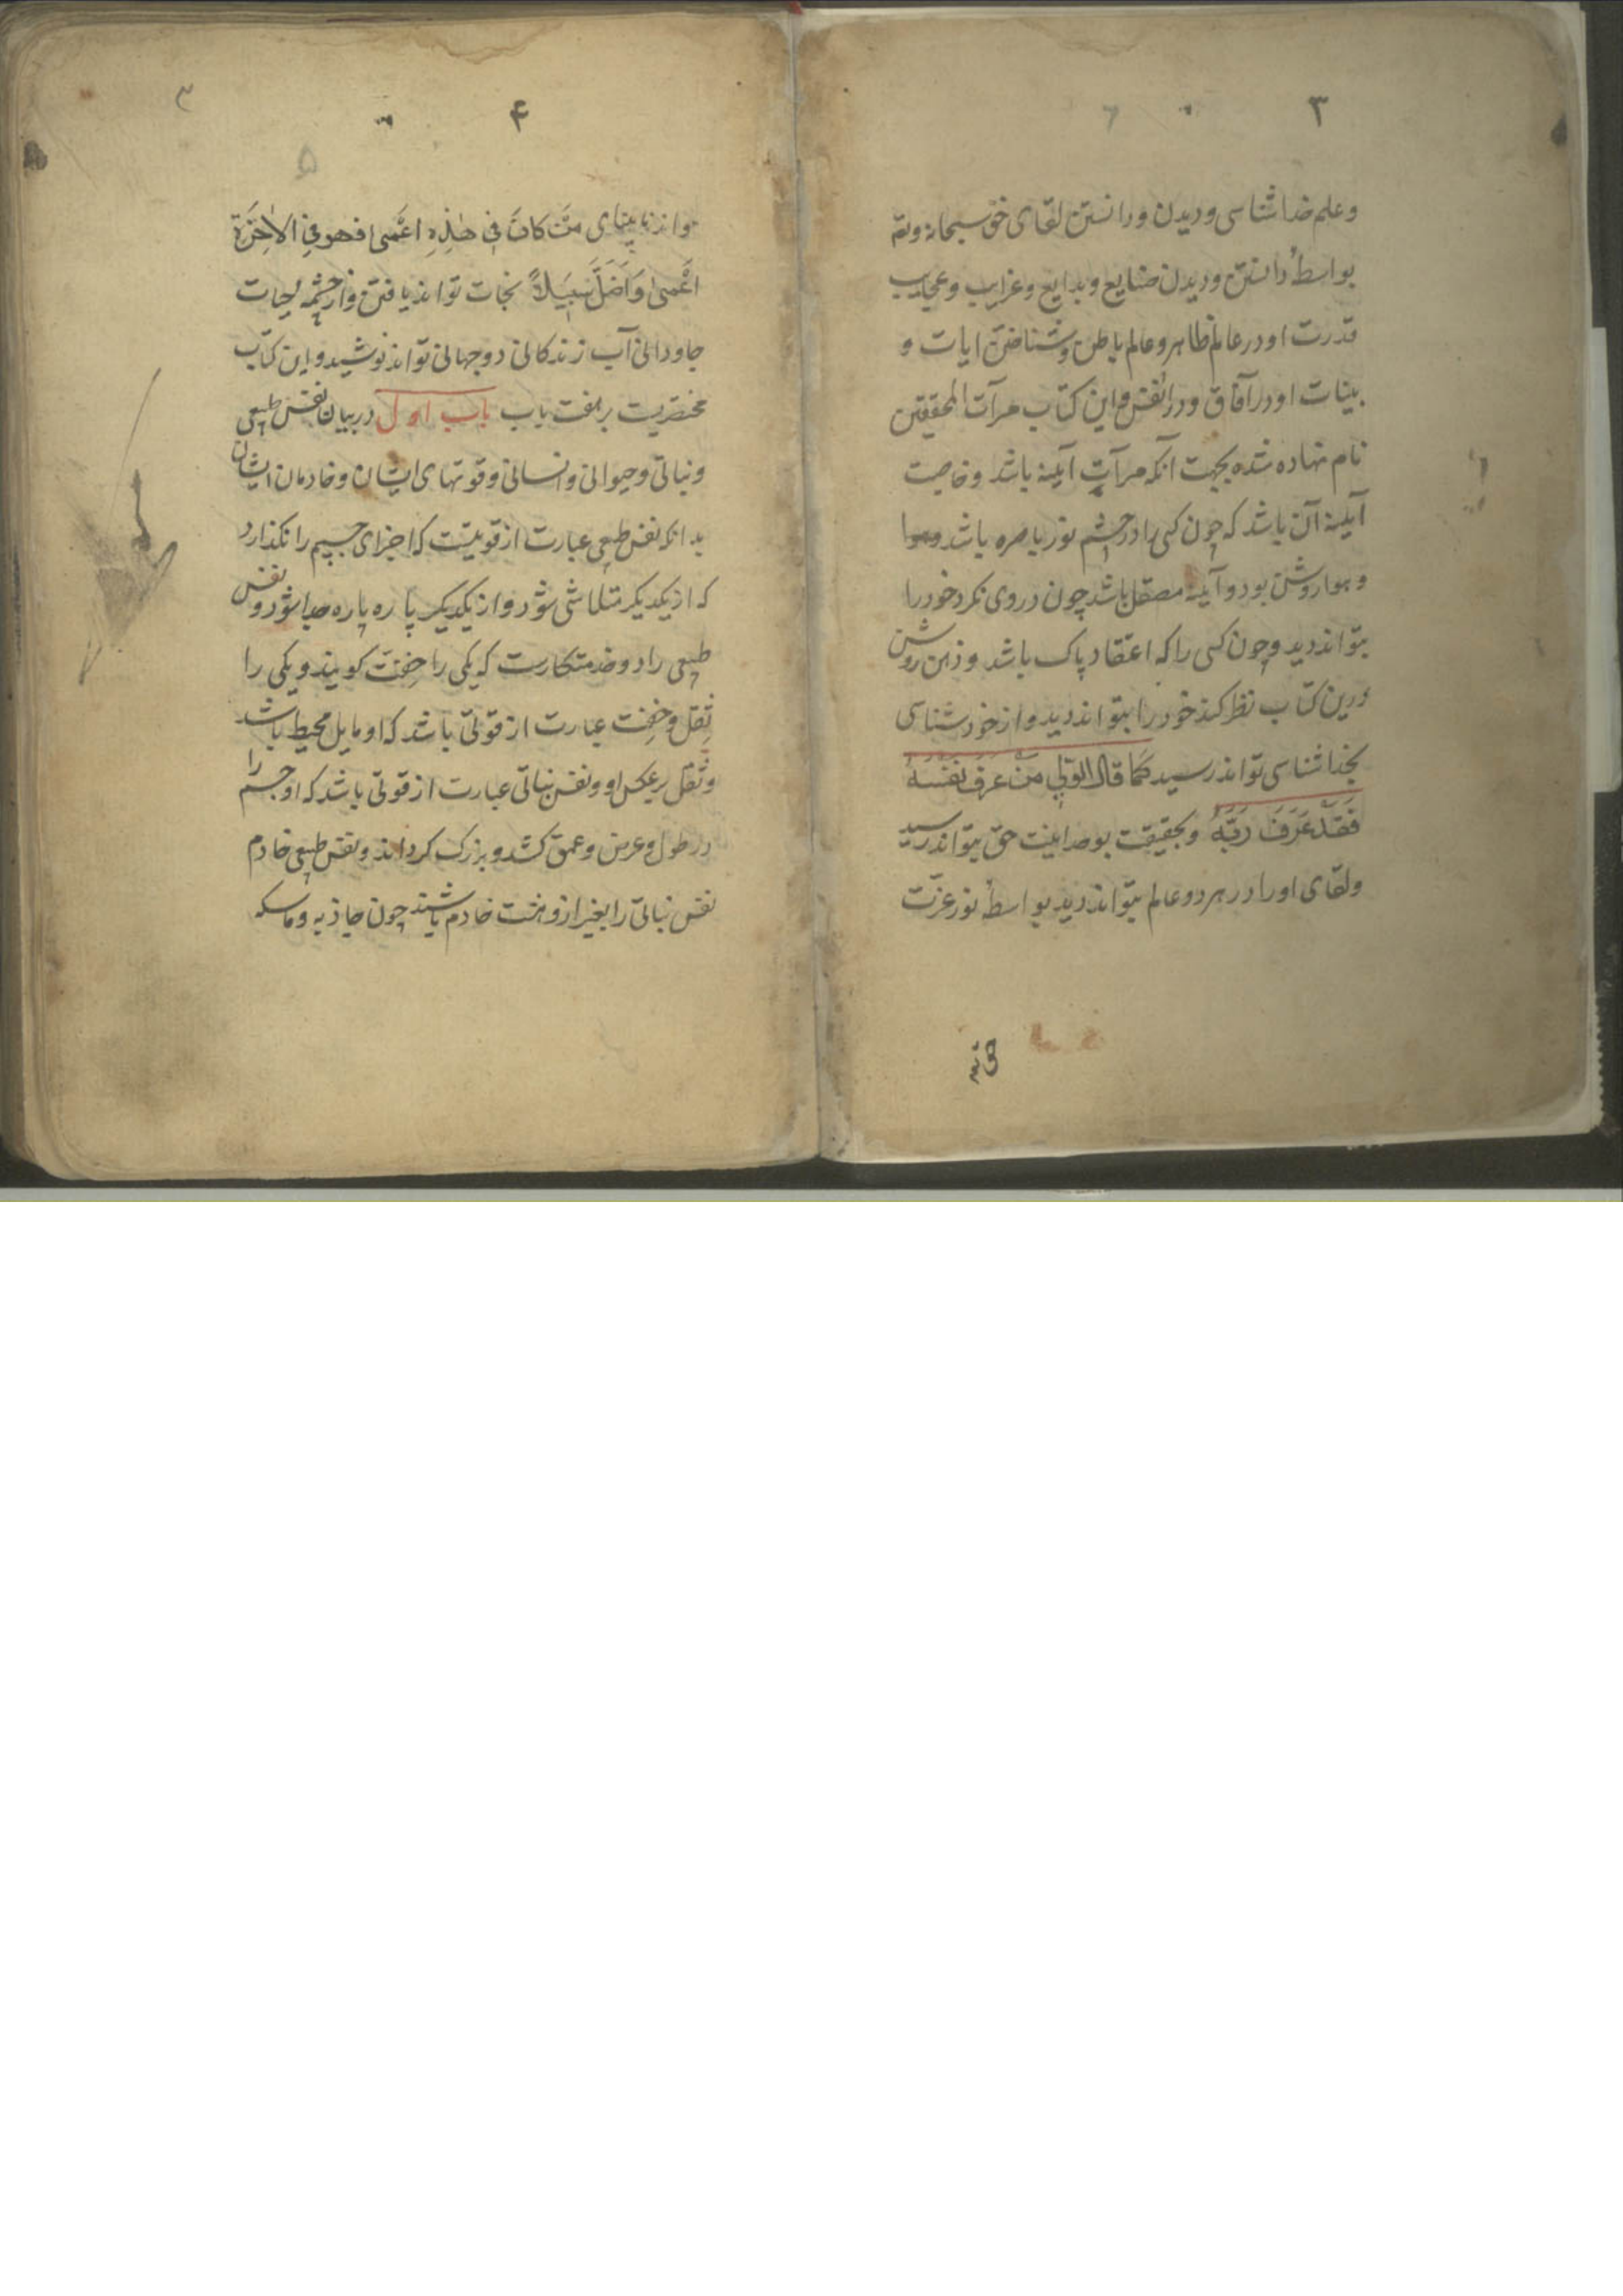 ۳
وعلم خداشناسی و دیدن و دانستن لقای حق سبحانه وتع
بواسطهٔ دانستن و دیدن صنایع و بدایع و غرایب و عجایب
قدرت او در عالم ظاهر و عالم باطن و شناختن ایات و
بینات او در آفاق و در انفس و این کتاب مرآت المحققین
نام نهاده شده بجهت آنکه مرآت آیینه باشد و خاصیت
آیینه آن باشد که چون کسی را در چشم نور باصره باشد و هوا
و هوا روشن بود و آینه مصقل باشد چون در وی نکرد خود را
بتواند دید و چون کسی را که اعتقاد پاک باشد و ذهن روشن
درین کتاب نظر کند خود را بتواند دید و از خودشناسی
بخداشناسی تواند رسید كما قال النبی مَنْ عَرَفَ نَفْسَهُ
فَقَدْ عَرَفَ رَبَّهُ و بحقیقت بوحدانیت حق بتواند رسید
ولقای او را در هر دو عالم بتواند دید بواسطهٔ نور عزت
۴
۳
۵
و از نابینای مَنْ كَانَ فِی هٰذِهِ اَعْمیٰ فهو فِی الاٰخِرَة
اَعْمیٰ وَاَضَلُّ سَبیلاً نجات تواند یافتن و از چشمه لحیات
جاودانی آب زندکانی دوجهانی تواند نوشید و این کتاب
مختصریت بر هفت باب باب اول در بیان نفس طبیعی
و نباتی و حیوانی و انسانی و قوتهای ایشان و خادمان ایشان
بدانکه نفس طبیعی عبارت از قوتیست که اجزای جسم را نکذارد
که از یکدیکر متلاشی شود و از یکدیکر پاره پاره جدا شود و نفس
طبیعی را دو خدمتکارست که یکی را خِفّت کویند و یکی را
ثِقل و خِفت عبارت از قوتی باشد که او مایل محیط باشد
و ثقل برعکس او و نفس نباتی عبارت از قوتی باشد که او جسم را
در طول و عرض و عمق کشد و بزرک کرداند و نفس طبیعی خادم
نفس نباتی را بغیر ازو هشت خادم باشند چون جاذبه و ماسکه